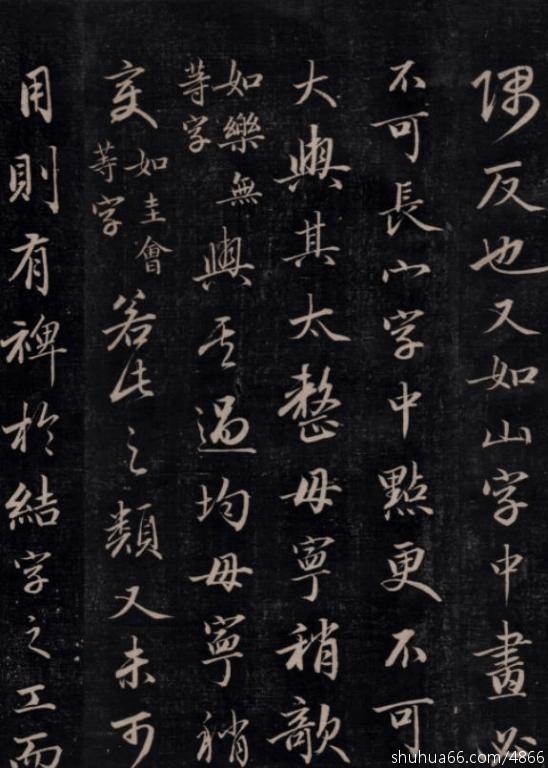 隅反也又如山字中畫必
不可長宀字中點更不可
大與其太整毋寧稍欹
如樂無
等字
與其過均毋寧稍
変
如圭會
等字
若此之類又未可
用則有裨於結字之工而
shuhua66.com/4866